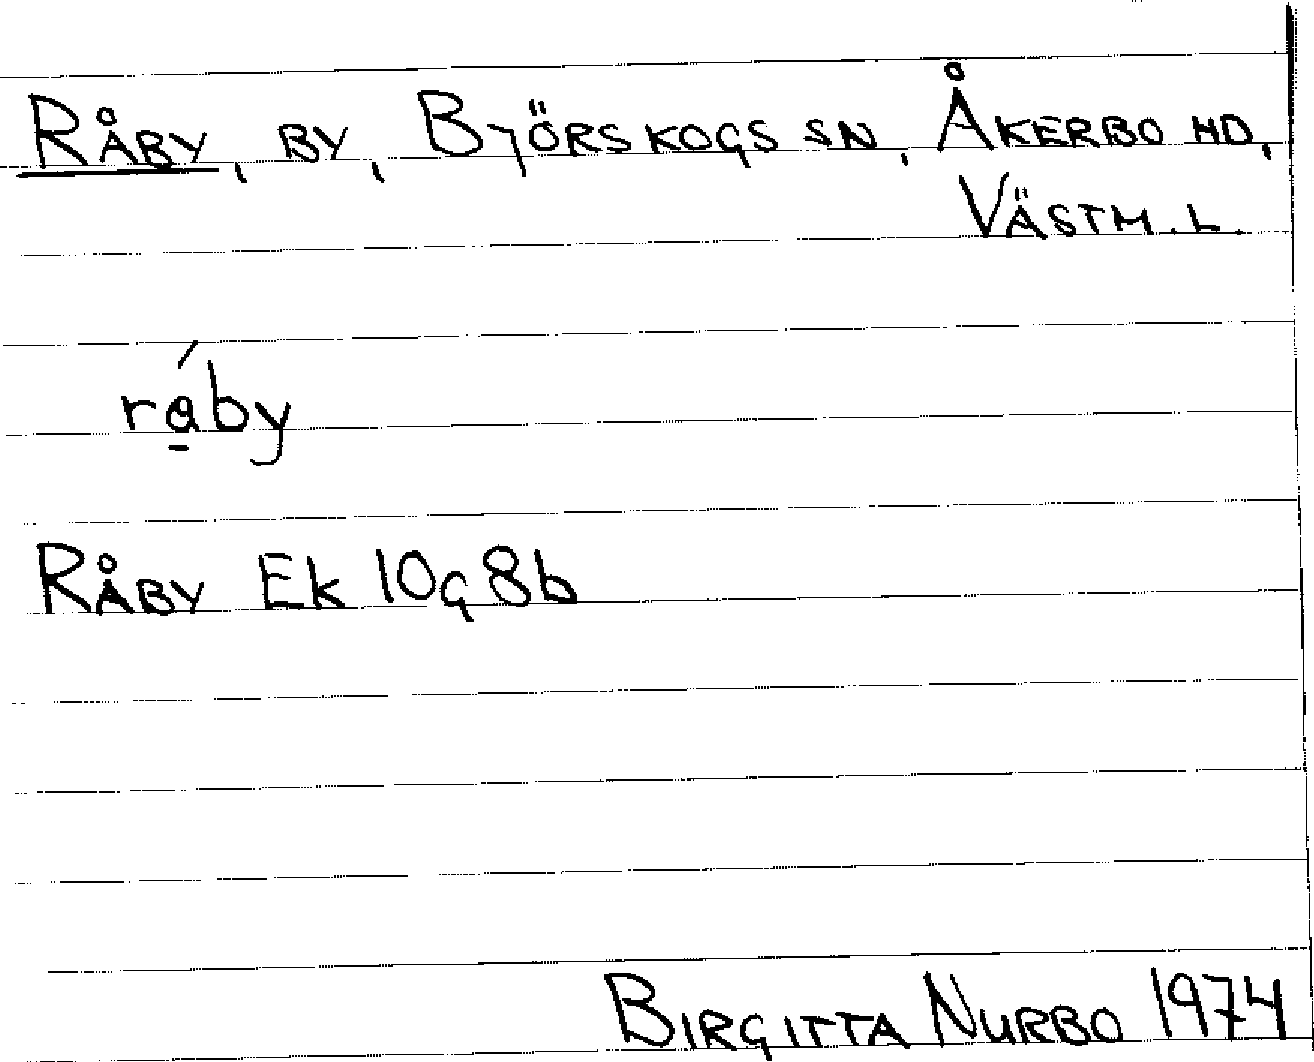 RÅBY, BY, BJÖRSKOGS SN, ÅKERBO HD,
VÄSTM. L.
rá̱by
RÅBY Ek 10g 8b
BIRGITTA NURBO 1974